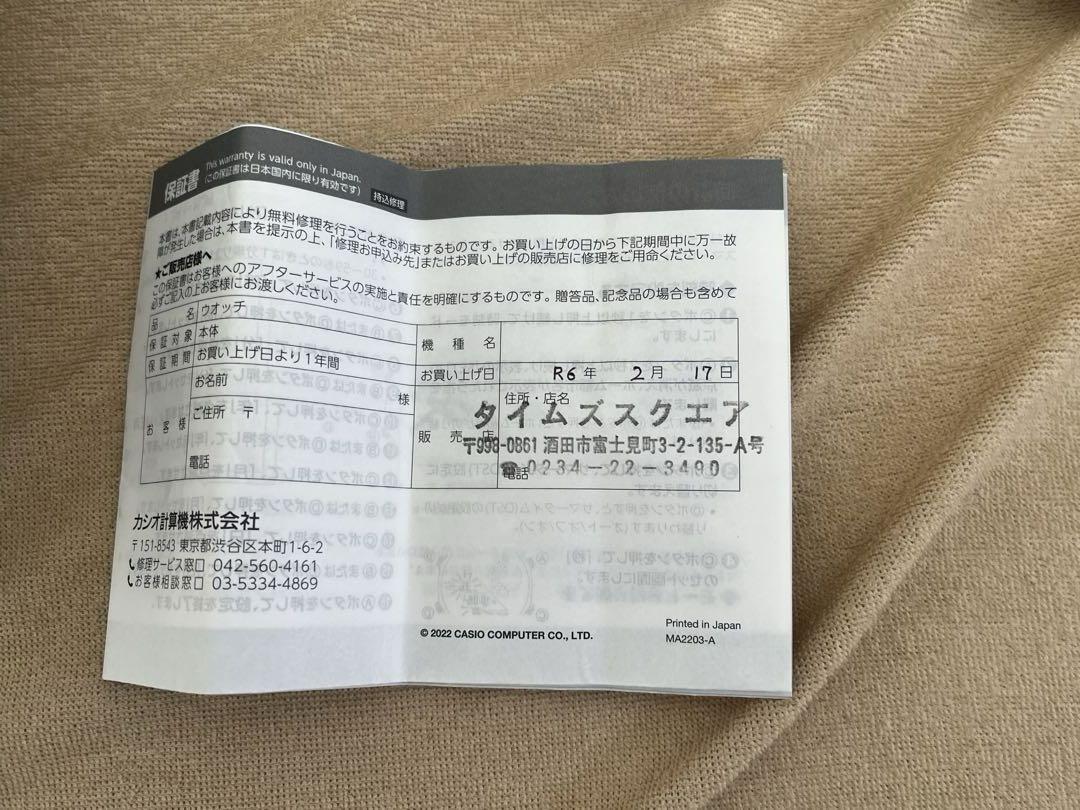 保証書
This warranty is valid only in Japan.
(この保証書は日本国内に限り有効です)
持込修理
本書は、本書記載内容により無料修理を行うことをお約束するものです。お買い上げの日から下記期間中に万一故
障が発生した場合は、本書を提示の上、「修理お申込み先」またはお買い上げの販売店に修理をご用命ください。
★ご販売店様へ
この保証書はお客様へのアフターサービスの実施と責任を明確にするものです。贈答品、記念品の場合も含めて
必ずご記入の上お客様にお渡しください。
品名 ウオッチ
保証対象 本体
保証期間 お買い上げ日より1年間
機種名
お買い上げ日 R6年 2月 17日
お客様
お名前 様
ご住所 〒
電話
販売店
住所・店名
タイムズスクエア
〒998-0861 酒田市富士見町3-2-135-A号
電話 ☎0234-22-3490
カシオ計算機株式会社
〒151-8543 東京都渋谷区本町1-6-2
修理サービス窓口 042-560-4161
お客様相談窓口 03-5334-4869
© 2022 CASIO COMPUTER CO., LTD.
Printed in Japan
MA2203-A